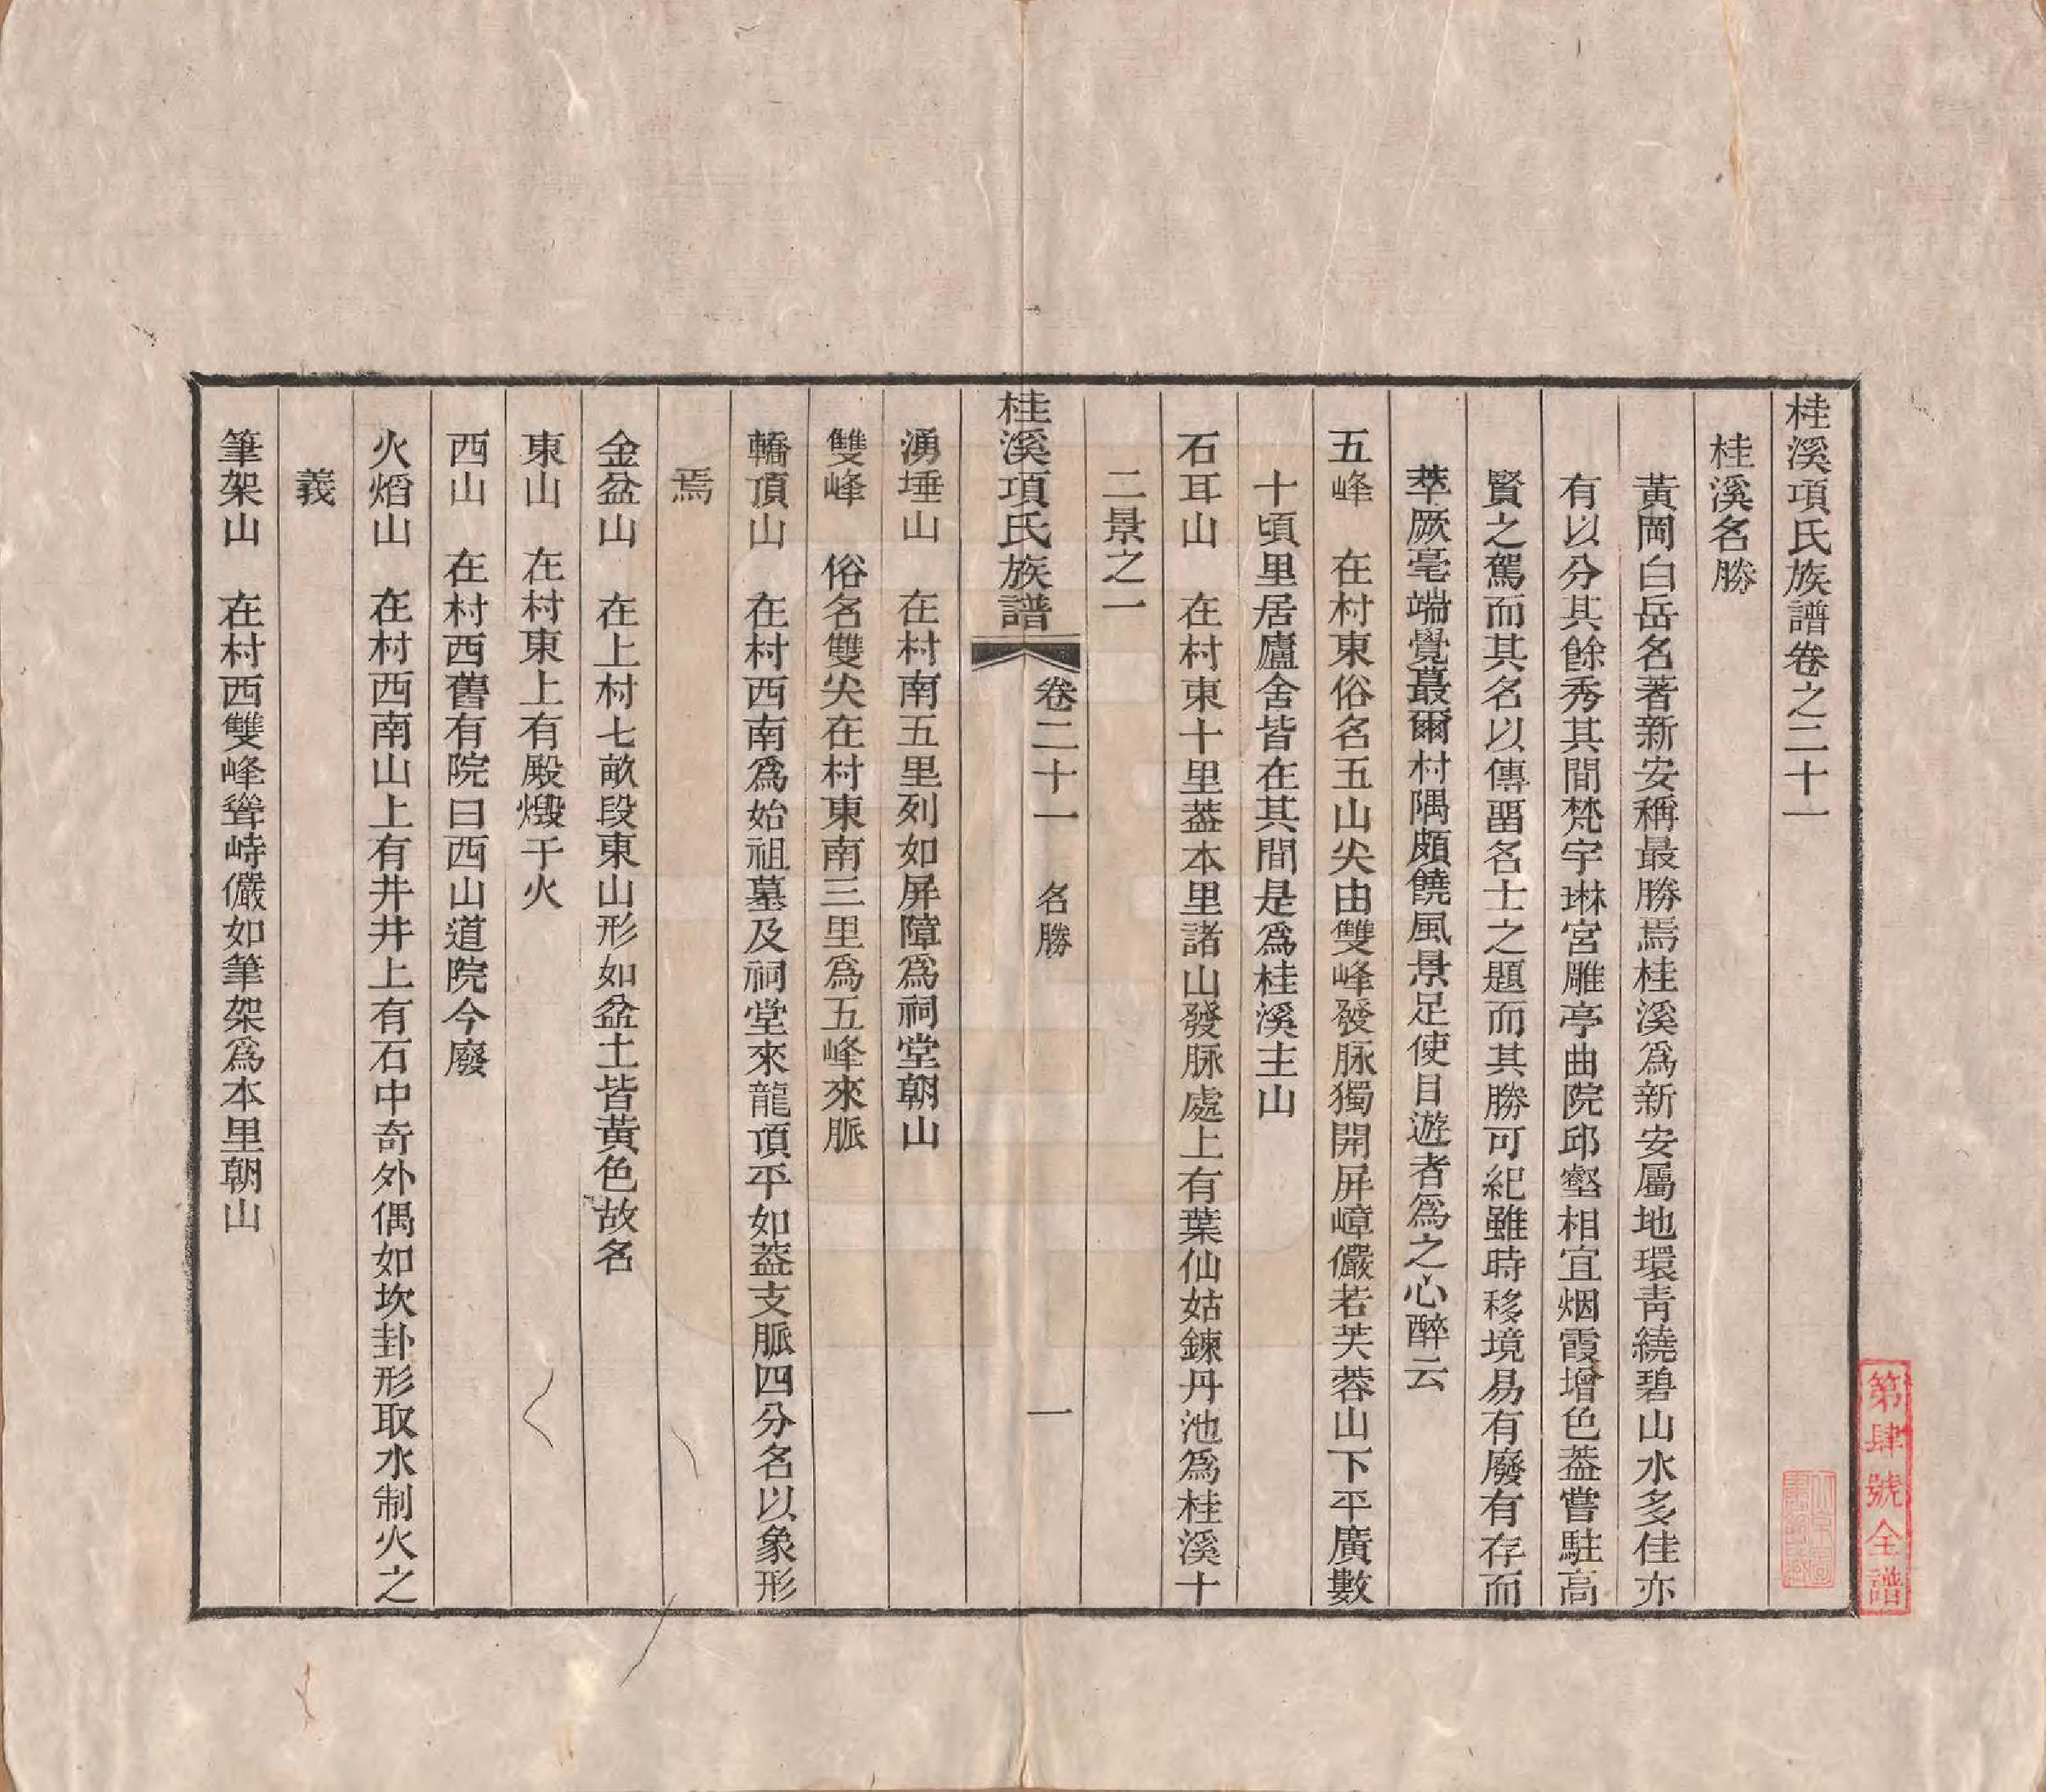 桂溪項氏族譜卷之二十一
桂溪名勝
黃岡白岳名著新安稱最勝焉桂溪爲新安屬地環靑繞碧山水多佳亦
有以分其餘秀其間梵宇琳宮雕亭曲院邱壑相宜烟霞增色葢嘗駐高
賢之駕而其名以傳畱名士之題而其勝可紀雖時移境易有廢有存而
萃厥毫端覺蕞爾村隅頗饒風景足使目遊者爲之心醉云
五峰　在村東俗名五山尖由雙峰發脉獨開屏嶂儼若芙蓉山下平廣數
十頃里居廬舍皆在其間是爲桂溪主山
石耳山　在村東十里葢本里諸山發脉處上有葉仙姑鍊丹池爲桂溪十
二景之一
桂溪項氏族譜　卷二十一　名勝　一
湧埵山　在村南五里列如屏障爲祠堂朝山
雙峰　俗名雙尖在村東南三里爲五峰來脈
轎頂山　在村西南爲始祖墓及祠堂來龍頂平如葢支脈四分名以象形
焉
金盆山　在上村七畝段東山形如盆土皆黃色故名
東山　在村東上有殿燬于火
西山　在村西舊有院曰西山道院今廢
火熖山　在村西南山上有井井上有石中奇外偶如坎卦形取水制火之
義
筆架山　在村西雙峰聳峙儼如筆架爲本里朝山
第肆號全譜